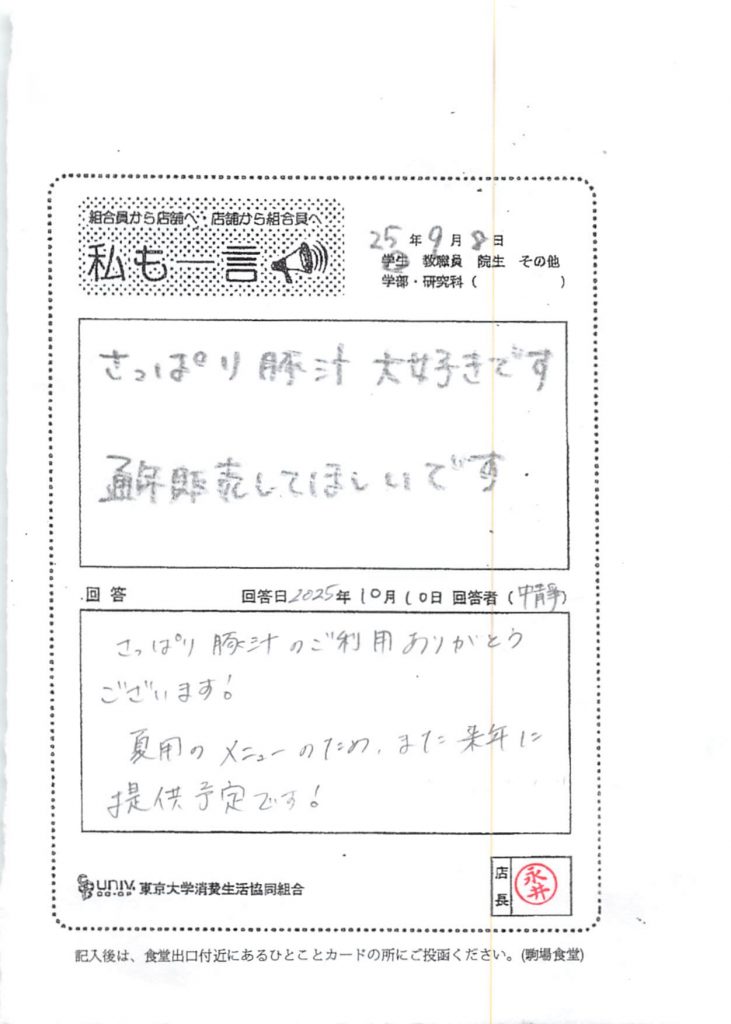 組合員から店舗へ・店舗から組合員へ
私も一言
25年9月8日
学生 教職員 院生 その他
学部・研究科( )
さっぱり豚汁 大好きです
通年販売してほしいです
回答 回答日2025年10月10日 回答者(中静)
さっぱり豚汁のご利用ありがとう
ございます!
夏用のメニューのため、また来年に
提供予定です!
UNIV. CO-OP 東京大学消費生活協同組合
店長
永井
記入後は、食堂出口付近にあるひとことカードの所にご投函ください。(駒場食堂)